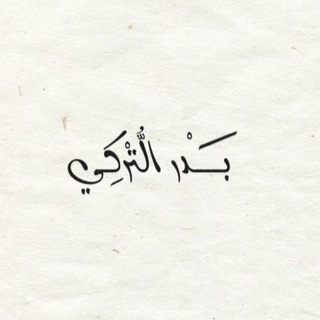 بَدْر الُتْركِي